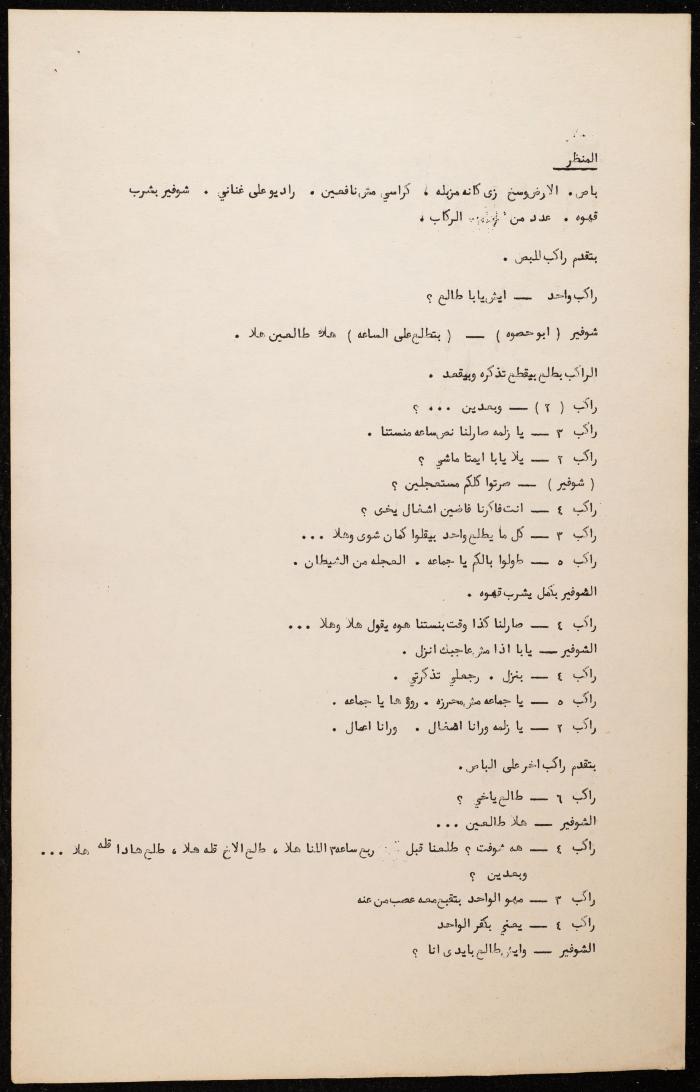 المنظر
باص . الارض وسخ زى كانه مزبله ، كراسي مش نافعين . راديو على غناني . شوفير بشرب
قهوه . عدد من الركاب .
بتقدم راكب للبص .
راكب واحد — ايش يابا طالع ؟
شوفير ( ابو حصوه ) — ( بتطلع على الساعه ) هلأ طالعين هلا .
الراكب بطلع بيقطع تذكره وبيقعد .
راكب ( ٢ ) — وبعدين ... ؟
راكب ٣ — يا زلمه صارلنا نص ساعه منستنا .
راكب ٢ — يلا يابا ايمتا ماشي ؟
( شوفير ) — صرتوا كلكم مستعجلين ؟
راكب ٤ — انت فاكرنا فاضين اشغال يخى ؟
راكب ٣ — كل ما يطلع واحد بيقلوا كمان شوى وهلا ...
راكب ٥ — طولوا بالكم يا جماعه . العجله من الشيطان .
الشوفير بكمل يشرب قهوه .
راكب ٤ — صارلنا كذا وقت بنستنا هوه يقول هلا وهلا ...
الشوفير — يابا اذا مش عاجبك انزل .
راكب ٤ — بنزل . رجعلي تذكرتي .
راكب ٥ — يا جماعه مش محرزه . روقها يا جماعه .
راكب ٢ — يا زلمه ورانا اشغال . ورانا اعمال .
بتقدم راكب اخر على الباص .
راكب ٦ — طالع ياخي ؟
الشوفير — هلا طالعين ...
راكب ٤ — هه شوفت ؟ طلعنا قبل ربع ساعه ٣ اللنا هلا ، طلع الاخ قله هلا ، طلع هادا قله هلا ...
وبعدين ؟
راكب ٣ — مهو الواحد بتقبع معه غصب من عنه
راكب ٤ — يعني بكفر الواحد
الشوفير — وايش طالع بايدى انا ؟